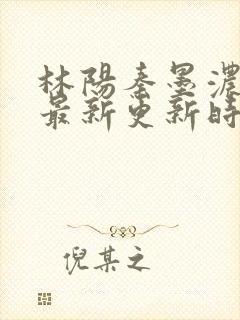 林陽秦墨濃
最新更新時
倪某之